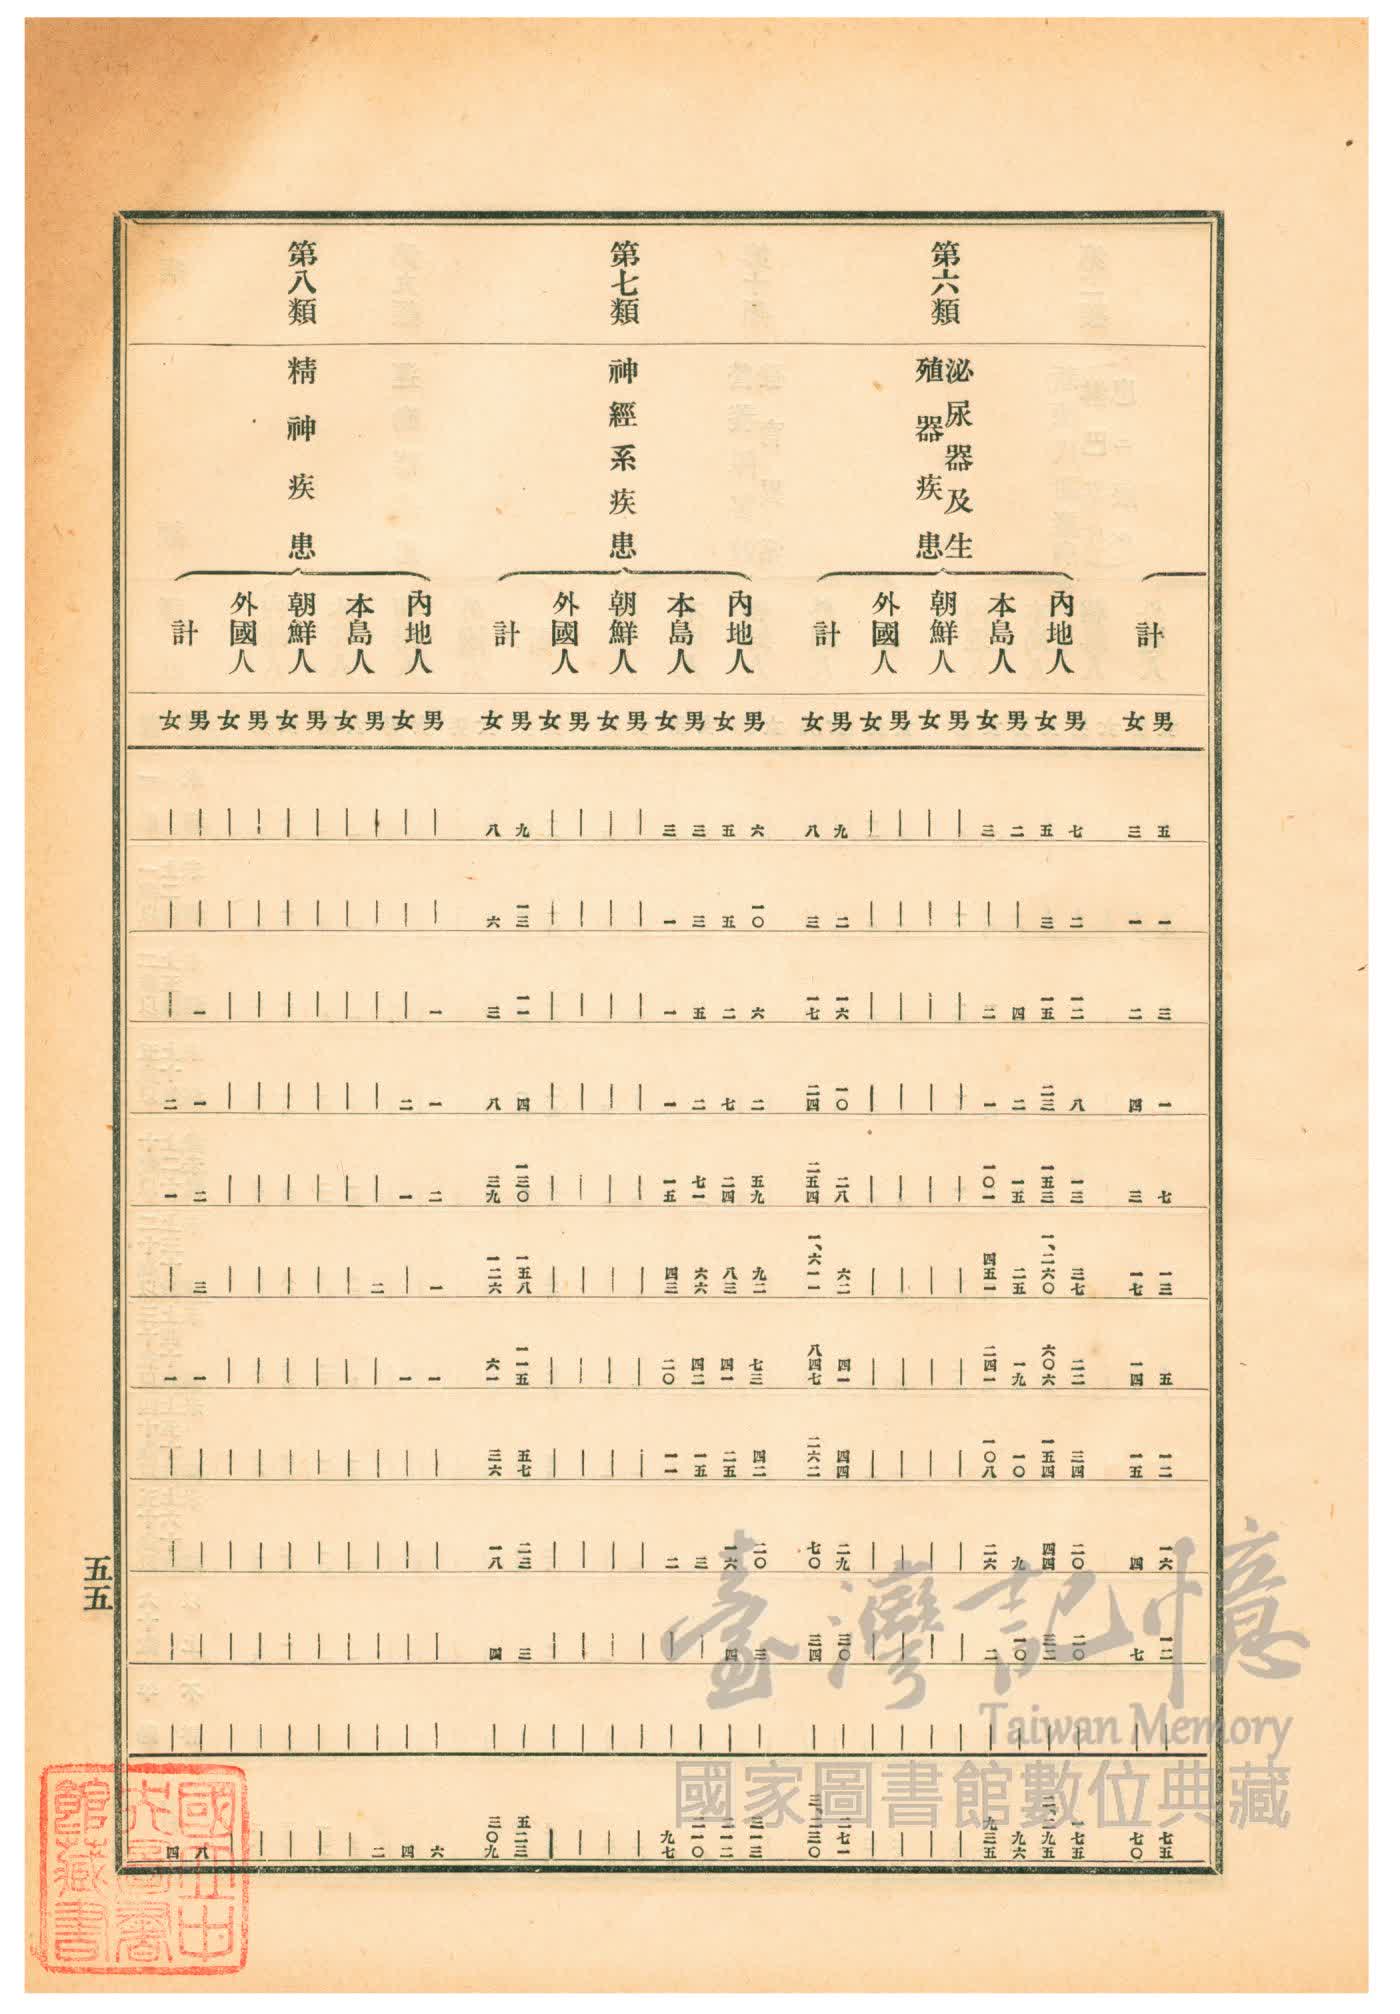 計
男 五 一 三 一 七 一三 五 一二 一六 一二 ｜ 七五
女 三 一 二 四 三 一七 一四 一五 四 七 ｜ 七〇
第六類
泌尿器及生
殖器疾患
內地人
男 七 二 一二 八 一三 三七 二二 三四 二〇 二〇 ｜ 一七五
女 五 三 一五 二三 一五三 一、二六〇 六〇六 一五四 四四 三二 ｜ 二、二九五
本島人
男 二 ｜ 四 二 一五 二五 一九 一〇 九 一〇 ｜ 九六
女 三 ｜ 二 一 一〇一 四五一 二四一 一〇八 二六 二 ｜ 九三五
朝鮮人
男 ｜ ｜ ｜ ｜ ｜ ｜ ｜ ｜ ｜ ｜ ｜ ｜
女 ｜ ｜ ｜ ｜ ｜ ｜ ｜ ｜ ｜ ｜ ｜ ｜
外國人
男 ｜ ｜ ｜ ｜ ｜ ｜ ｜ ｜ ｜ ｜ ｜ ｜
女 ｜ ｜ ｜ ｜ ｜ ｜ ｜ ｜ ｜ ｜ ｜ ｜
計
男 九 二 一六 一〇 二八 六二 四一 四四 二九 三〇 ｜ 二七一
女 八 三 一七 二四 二五四 一、六一一 八四七 二六二 七〇 三四 ｜ 三、二三〇
第七類
神經系疾患
內地人
男 六 一〇 六 二 五九 九二 七三 四二 二〇 三 ｜ 三一三
女 五 五 二 七 二四 八三 四一 二五 一六 四 ｜ 二一二
本島人
男 三 三 五 二 七一 六六 四二 一五 三 ｜ ｜ 二一〇
女 三 一 一 一 一五 四三 二〇 一一 二 ｜ ｜ 九七
朝鮮人
男 ｜ ｜ ｜ ｜ ｜ ｜ ｜ ｜ ｜ ｜ ｜ ｜
女 ｜ ｜ ｜ ｜ ｜ ｜ ｜ ｜ ｜ ｜ ｜ ｜
外國人
男 ｜ ｜ ｜ ｜ ｜ ｜ ｜ ｜ ｜ ｜ ｜ ｜
女 ｜ ｜ ｜ ｜ ｜ ｜ ｜ ｜ ｜ ｜ ｜ ｜
計
男 九 一三 一一 四 一三〇 一五八 一一五 五七 二三 三 ｜ 五二三
女 八 六 三 八 三九 一二六 六一 三六 一八 四 ｜ 三〇九
第八類
精神疾患
內地人
男 ｜ ｜ 一 一 二 一 一 ｜ ｜ ｜ ｜ 六
女 ｜ ｜ ｜ 二 一 ｜ 一 ｜ ｜ ｜ ｜ 四
本島人
男 ｜ ｜ ｜ ｜ ｜ 二 ｜ ｜ ｜ ｜ ｜ 二
女 ｜ ｜ ｜ ｜ ｜ ｜ ｜ ｜ ｜ ｜ ｜ ｜
朝鮮人
男 ｜ ｜ ｜ ｜ ｜ ｜ ｜ ｜ ｜ ｜ ｜ ｜
女 ｜ ｜ ｜ ｜ ｜ ｜ ｜ ｜ ｜ ｜ ｜ ｜
外國人
男 ｜ ｜ ｜ ｜ ｜ ｜ ｜ ｜ ｜ ｜ ｜ ｜
女 ｜ ｜ ｜ ｜ ｜ ｜ ｜ ｜ ｜ ｜ ｜ ｜
計
男 ｜ ｜ 一 一 二 三 一 ｜ ｜ ｜ ｜ 八
女 ｜ ｜ ｜ 二 一 ｜ 一 ｜ ｜ ｜ ｜ 四
五五
臺灣記憶
Taiwan Memory
國家圖書館數位典藏
國立中
央圖書
館藏書